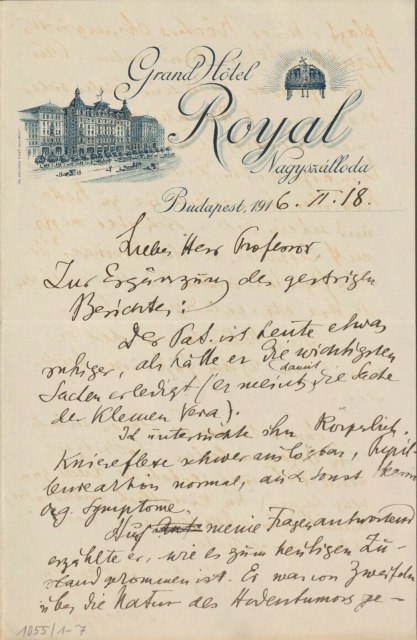 Grand Hôtel
Royal
Nagyszálloda
Budapest, 1916. II. 18.
Lieber Herr Professor
Zur Ergänzung des gestrigen
Berichtes:
Der Pat. ist heute etwas
ruhiger, als hätte er die wichtigsten
Sachen erledigt (er meint damit die Sache
der kleinen Vera).
Ich untersuchte ihn körperlich.
Kniereflexe schwer auslösbar, Pupil-
lenreaktion normal, auch sonst keine
org. Symptome.
Auf meine Fragen antwortend
erzählte er, wie es zum heutigen Zu-
stand gekommen ist. Er war von Zweifeln
über die Natur des Hodentumors ge-
1055/1-7